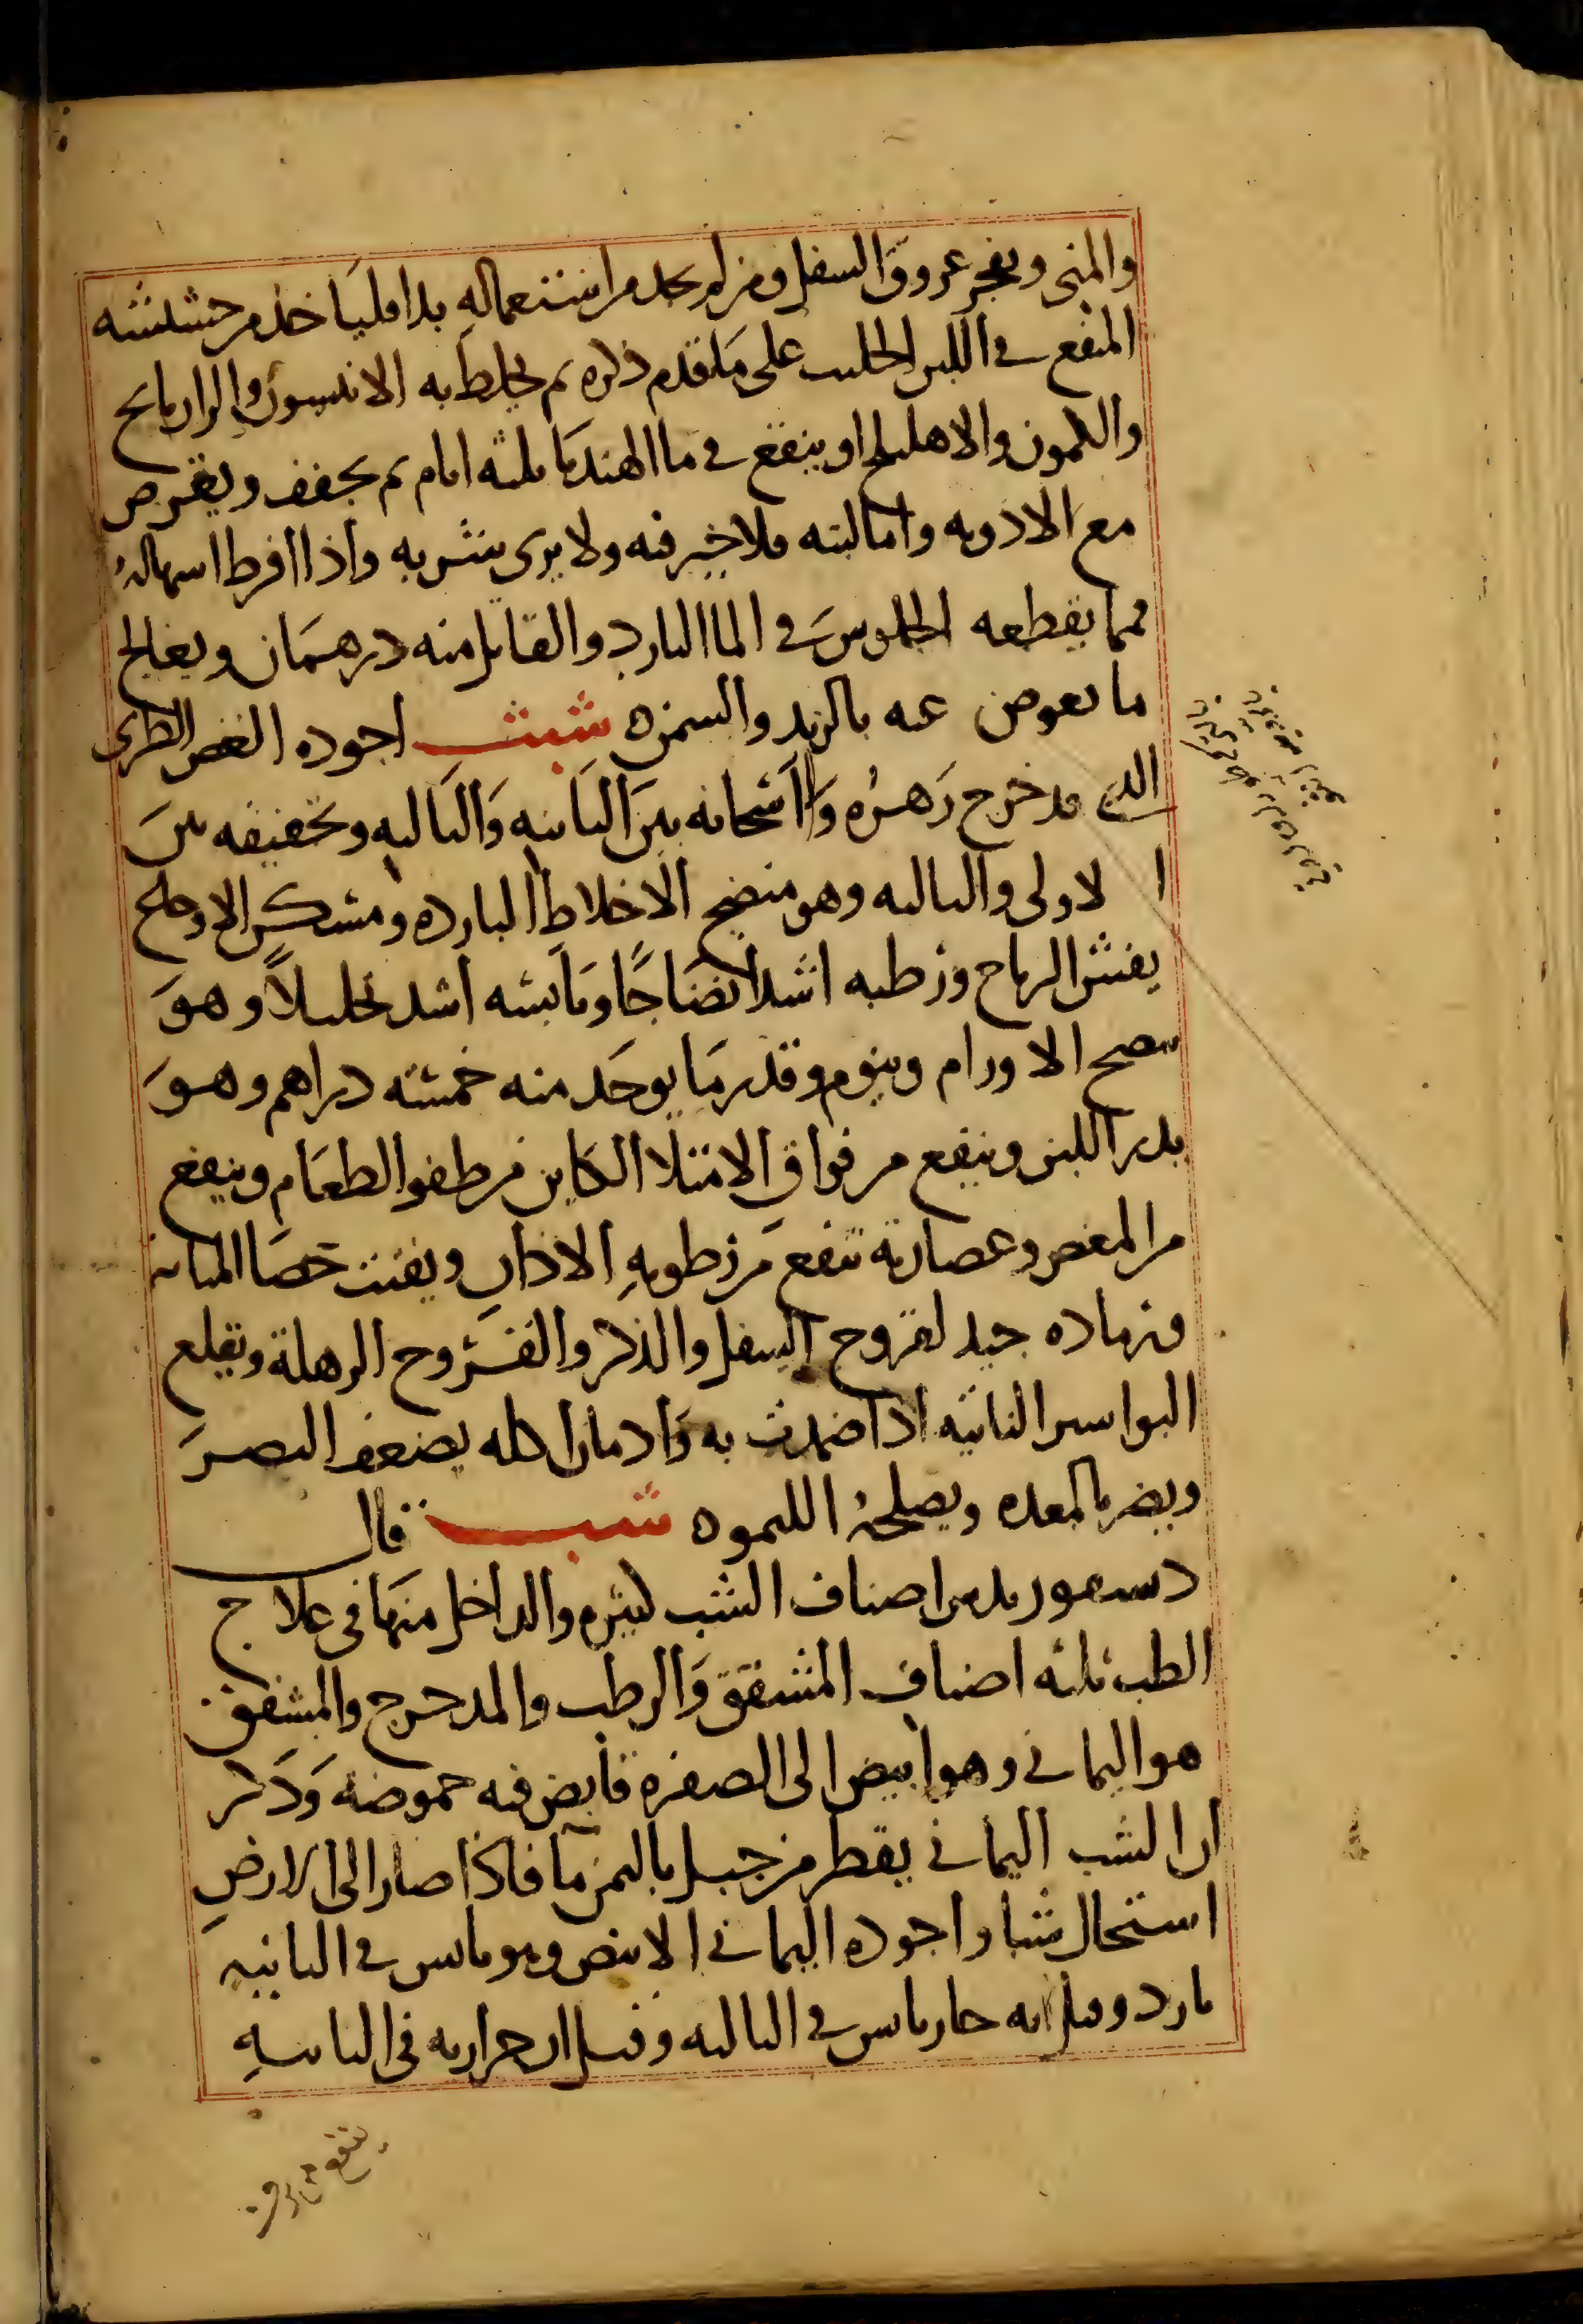 والمنى ويفجر عروق السفل ومن لم يجد من استعماله بدا فليأخذ من حشيشه
المنقع في اللبن الحليب على ما تقدم ذكره ثم يخلط به الانيسون والرازيانج
والكمون والاهليلج او ينقع في ما الهندبا ثلثه ايام ثم يجفف ويقرص
مع الادويه واما لبنه فلا خير فيه ولا يرى بشربه واذا افرط اسهاله
فمما يقطعه الجلوس في الما البارد والقاتل منه درهمان ويعالج
ما يعرض عنه بالزبد والسمن ه شبث اجوده الغض الطري
الذي قد خرج زهره واسخانه بين الثانيه والثالثه وتجفيفه بين
الاولى والثالثه وهو منضج الاخلاط البارده ومسكن الاوجاع
يفش الرياح ورطبه اشد انضاجا ويابسه اشد تحليلا وهو
ينضج الاورام وينوم وقدر ما يوخذ منه خمسه دراهم وهو
يدر اللبن وينفع من فواق الامتلا الكاين من طفو الطعام وينفع
من المغص وعصارته تنفع من رطوبه الاذان ويفتت حصا المثانه
ورماده جيد لقروح السفل والذكر والقروح الرهلة ويقلع
البواسير الناتيه اذا ضمدت به وادمان اكله يضعف البصر
ويضر بالمعده ويصلحه الليمو ه شب قال
ديسقوريدس اصناف الشب كثيره والداخل منها في علاج
الطب ثلثه اصناف المشقق والرطب والمدحرج والمشقق
هو اليماني وهو ابيض الى الصفره قابض فيه حموضه وذكر
ان الشب اليماني يقطر من جبل باليمن ما فاذا صار الى الارض
استحال شبا واجوده اليماني الابيض وهو يابس في الثانيه
بارد وقيل انه حار يابس في الثالثه وقيل ان حرارته في الثانيه